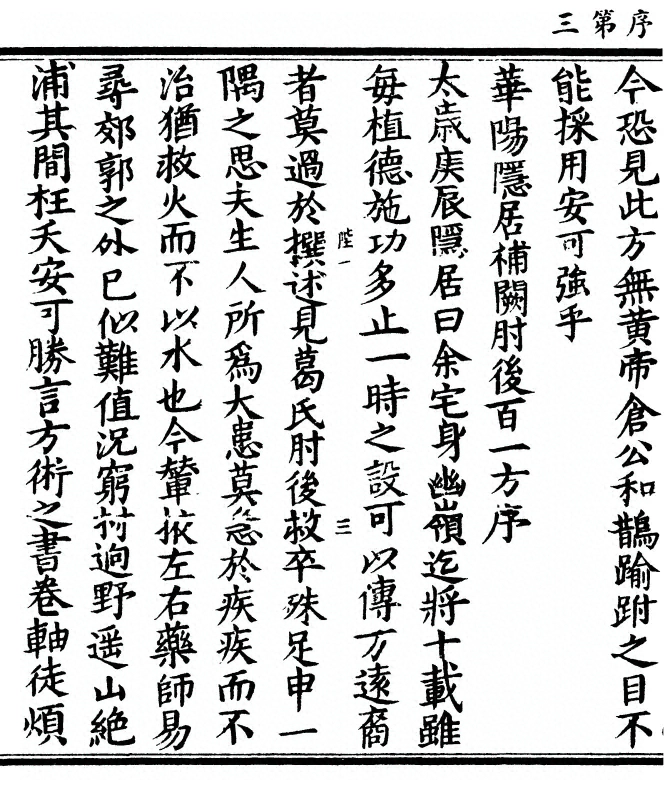 序第三
今恐見此方無黄帝倉公和鵲踰跗之目不
能採用安可強乎
華陽隱居補闕肘後百一方序
太歲庚辰隱居曰余宅身幽嶺迄將十載雖
每植德施功多止一時之設可以傳方遠裔
陞一
三
者莫過於撰述見葛氏肘後救卒殊足申一
隅之思夫生人所爲大患莫急於疾疾而不
治猶救火而不以水也今輦掖左右藥師易
尋郊郭之外已似難值况窮村迥野遥山絶
浦其間枉夭安可勝言方術之書卷軸徒煩